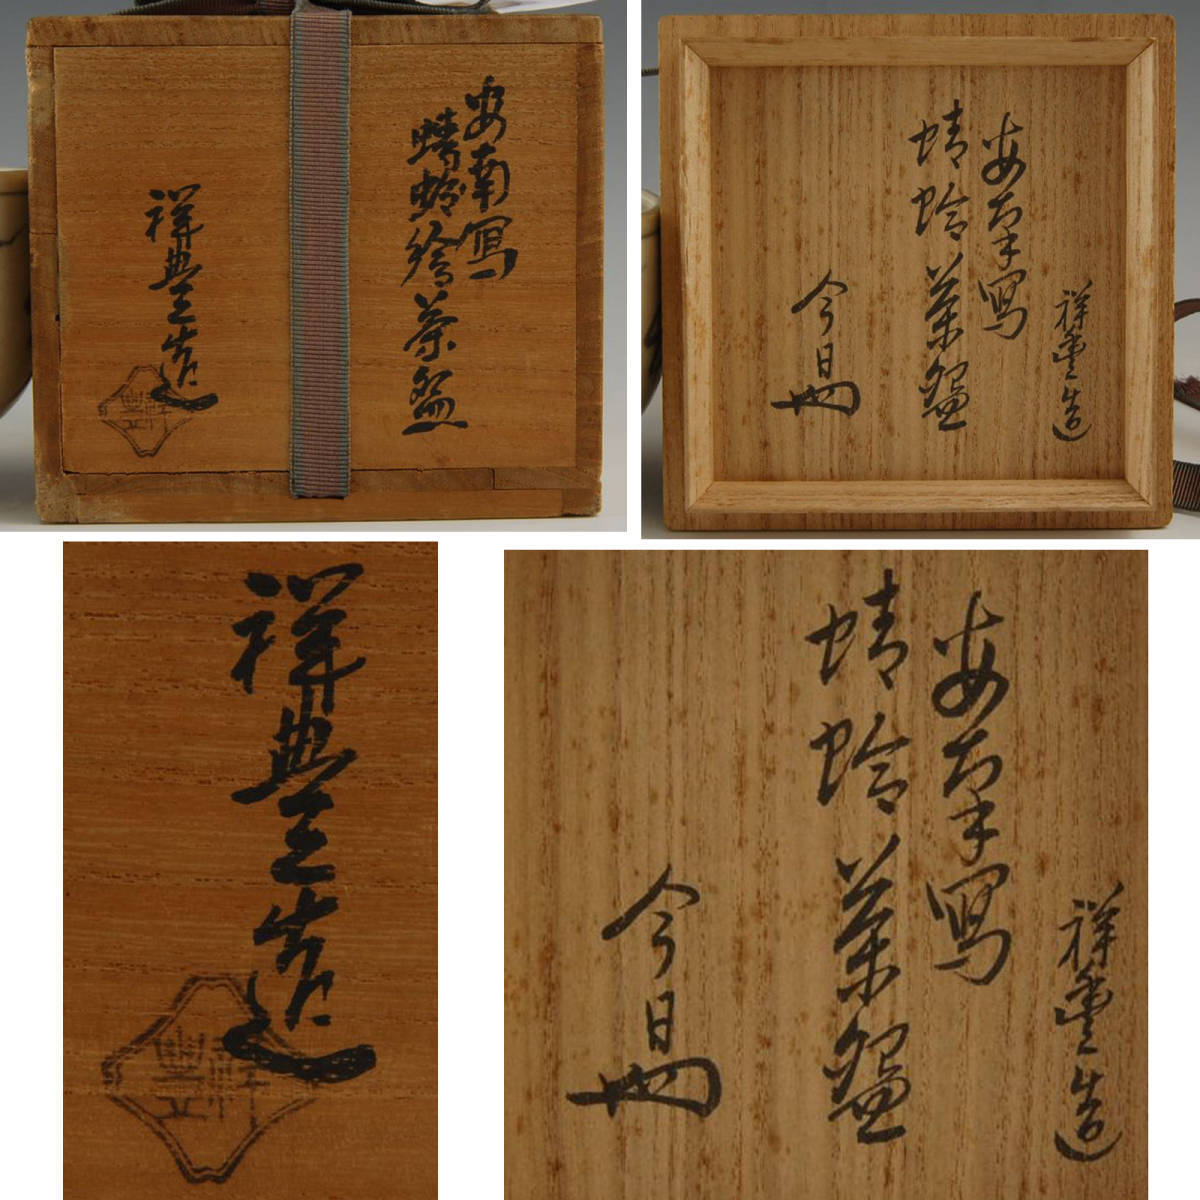 安南写
蜻蛉絵茶盌
祥豊造
祥豊
祥豊造
安南写
蜻蛉茶盌
今日
祥豊造
祥豊
祥豊造
安南写
蜻蛉茶盌
今日